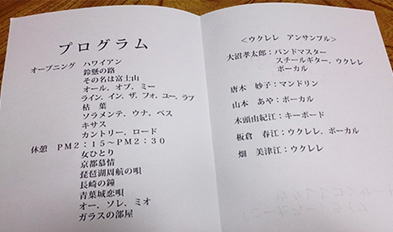 プログラム
オープニング ハワイアン
鈴懸の路
その名は富士山
オール、オブ、ミー
ライン、イン、ザ、フォー、ユー、ラブ
枯 葉
ソラメンテ、ウナ、ベス
キサス
カントリー、ロード
休憩 PM2:15〜PM2:30
女ひとり
京都慕情
琵琶湖周航の唄
長崎の鐘
青葉城恋唄
オー、ソレ、ミオ
ガラスの部屋
<ウクレレ アンサンブル>
大沼孝太郎:バンドマスター
スチールギター、ウクレレ
ボーカル
唐木 妙子:マンドリン
山本 あや:ボーカル
木頭由紀江:キーボード
板倉 春江:ウクレレ、ボーカル
畑 美津江:ウクレレ